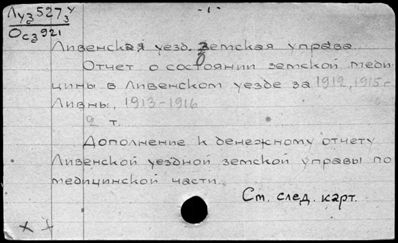 Луз 527 у/3
Осз 921
-1-
Ливенская уезд. земская управа.
Отчет о состоянии земской меди
цины в Ливенском уезде за 1912, 1915-
Ливны, 1913-1916
2 т.
Дополнение к денежному отчету
Ливенской уездной земской управы по
медицинской части.
См. след. карт.